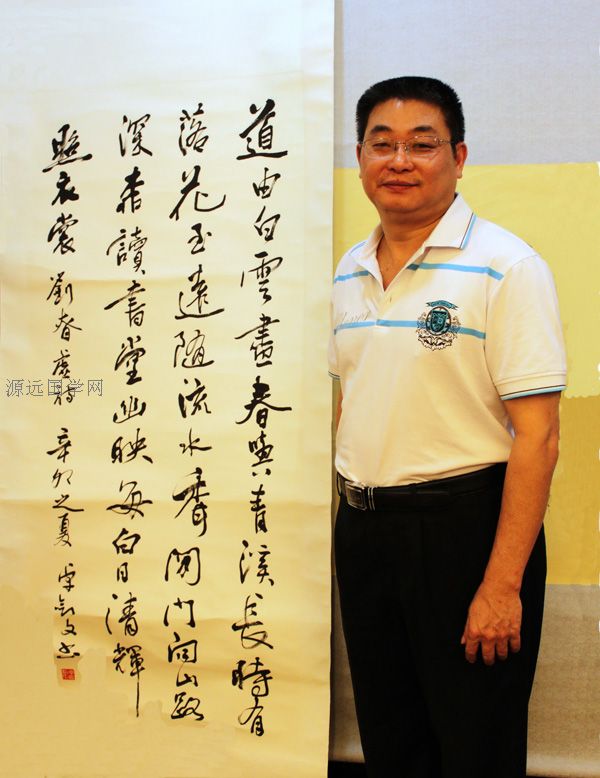 道由白雲盡春與青溪長時有
落花至遠隨流水香閒門向山路
深柳讀書堂幽映每白日清輝
照衣裳 劉眘虛詩 辛卯之夏
源远国学网